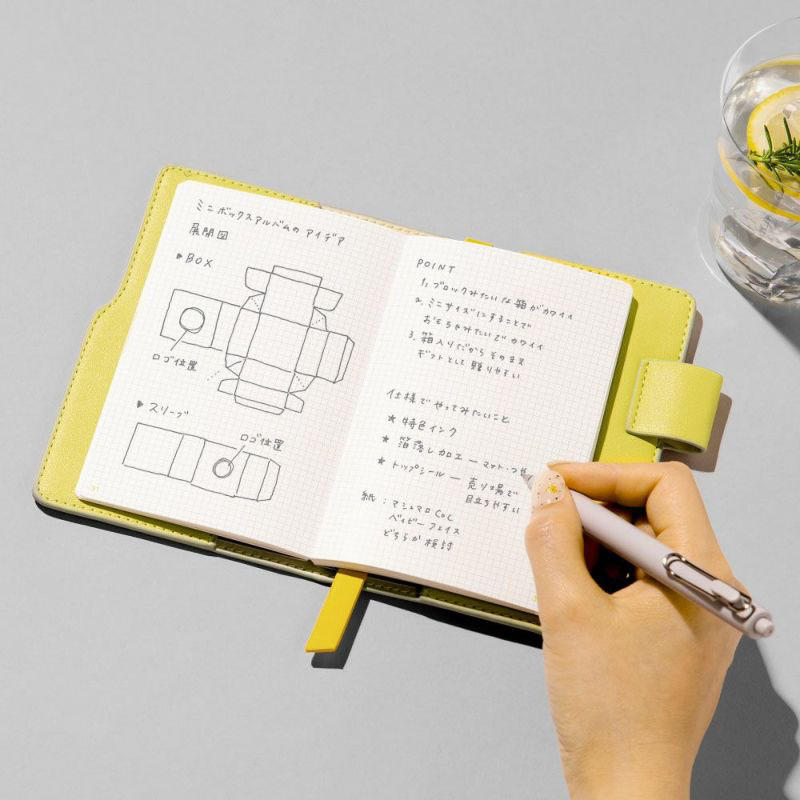 ミニボックスアルバムの アイデア
展開図
▶BOX
ロゴ位置
▶スリーブ
ロゴ位置
POINT
1. ブロックみたいな箱がカワイイ
2. ミニサイズにすることで
おもちゃみたいでカワイイ
3. 箱入りだから そのまま
ギフトとして贈りやすい
仕様で やってみたいこと
★ 特色インク
★ 箔落し加工 — マット・つや
★ トップシール — 売り場で
目立ちやすい
紙：マシュマロCoC
ベイビーフェイス
どちらか検討